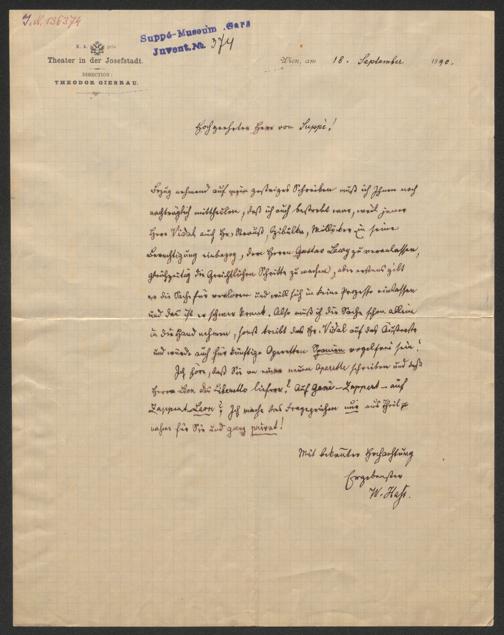 I. N. 136374
Suppé-Museum Gars
Invent. №. 374
K. k. priv.
Theater in der Josefstadt.
DIRECTION:
THEODOR GIESRAU.
Wien, am 18. September 1890.
Hochgeehrter Herr von Suppé!
Bezug nehmend auf mein gestriges Schreiben muß ich Ihnen noch
nachträglich mittheilen, daß ich auch bestrebt war, weil jener
Herr Vidal auch Hr. Strauß, Czibulka, Millöcker in seine
Berechtigung einbezog, den Herrn Gustav Lewy zu veranlassen,
gleichzeitig die gerichtlichen Schritte zu machen, aber erstens gibt
er die Sache für verloren und will sich in keine Prozesse einlassen
und das ist er schwer krank. Also muß ich die Sache schon allein
in die Hand nehmen, sonst treibt das Hr. Vidal auf das Äußerste
und würde auch für künftige Operetten Spanien vogelfrei sein!
Ich höre, daß Sie an einer neuen Operette schreiben und daß
Herr Léon das Libretto liefert? Auf Genée-Zappert - auf
Zappert-Léon? Ich mache das Fragezeichen nur aus Theil-
nahme für Sie und ganz privat!
Mit bekannter Hochachtung
Ergebenster